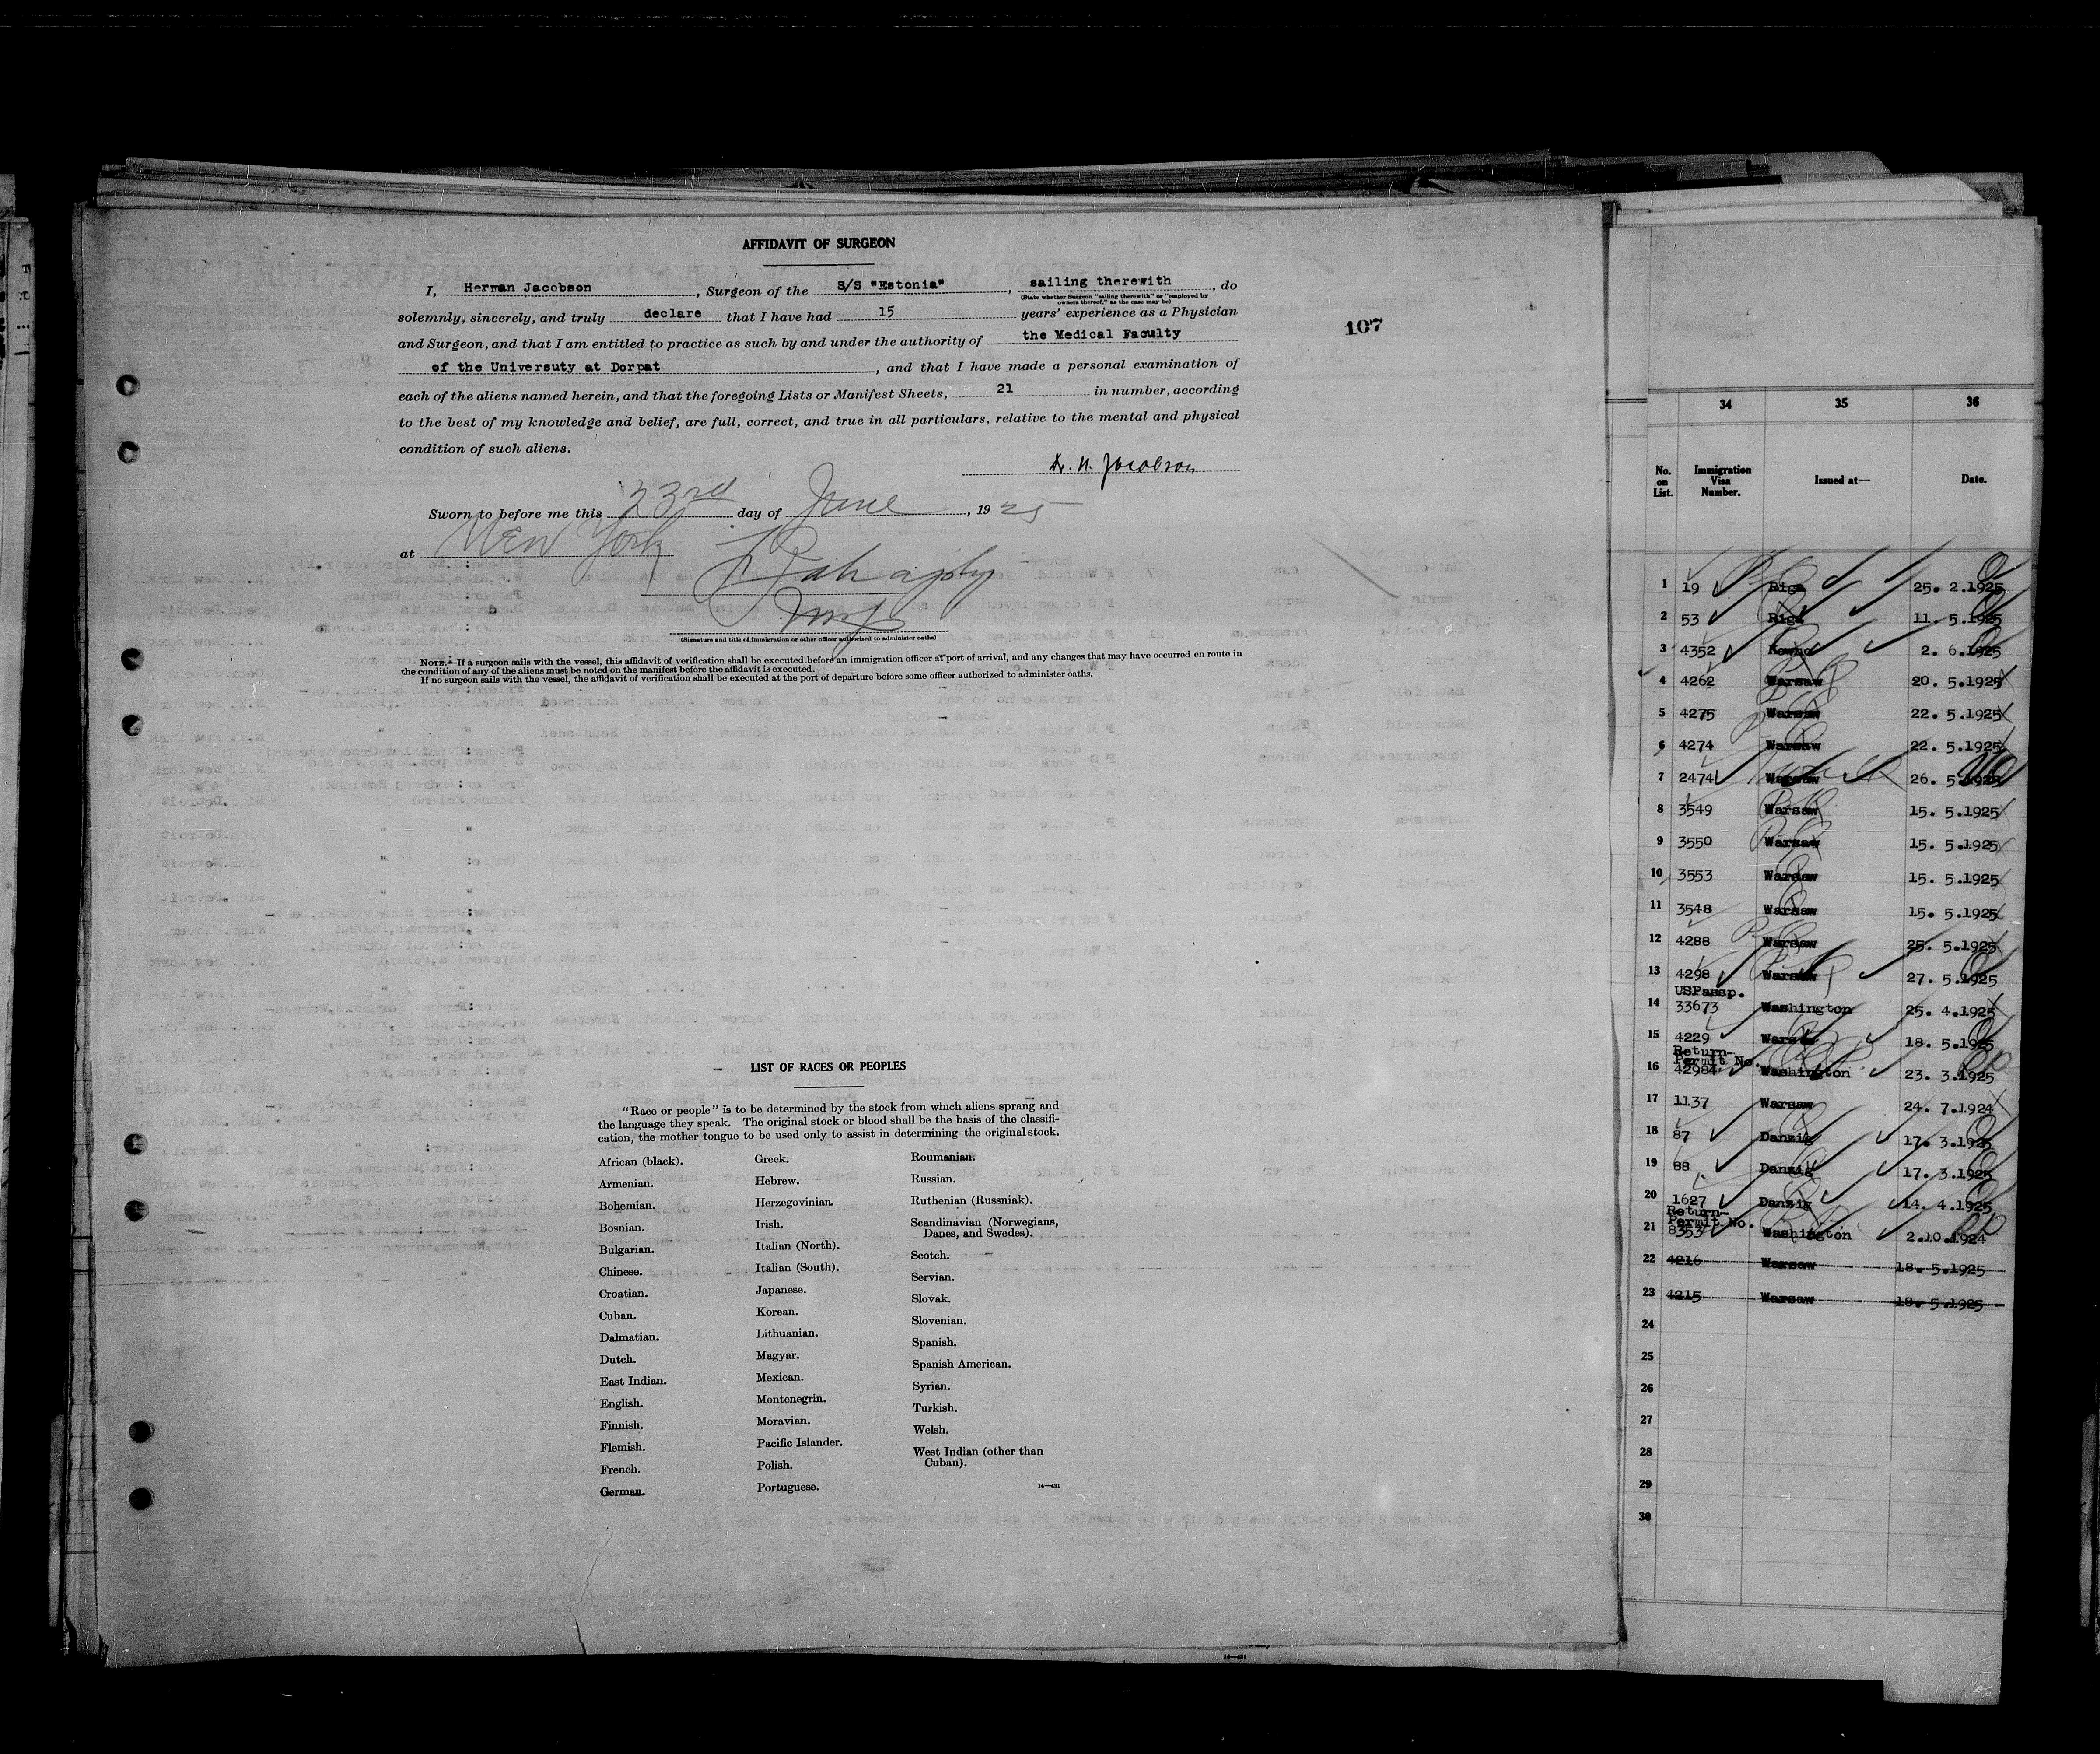 AFFIDAVIT OF SURGEON
I, Herman Jacobson, Surgeon of the S/S "Estonia", sailing therewith, do
(State whether Surgeon "sailing therewith" or "employed by
owners thereof," as the case may be)
solemnly, sincerely, and truly declare that I have had 15 years' experience as a Physician
and Surgeon, and that I am entitled to practice as such by and under the authority of the Medical Faculty
of the Universuty at Dorpat, and that I have made a personal examination of
each of the aliens named herein, and that the foregoing Lists or Manifest Sheets, 21 in number, according
to the best of my knowledge and belief, are full, correct, and true in all particulars, relative to the mental and physical
condition of such aliens.
Dr. H. Jacobson
Sworn to before me this 23rd day of June, 1925
at New York
(Signature and title of immigration or other officer authorized to administer oaths)
NOTE.—If a surgeon sails with the vessel, this affidavit of verification shall be executed before an immigration officer at port of arrival, and any changes that may have occurred en route in
the condition of any of the aliens must be noted on the manifest before the affidavit is executed.
If no surgeon sails with the vessel, the affidavit of verification shall be executed at the port of departure before some officer authorized to administer oaths.
107
LIST OF RACES OR PEOPLES
"Race or people" is to be determined by the stock from which aliens sprang and
the language they speak. The original stock or blood shall be the basis of the classifi-
cation, the mother tongue to be used only to assist in determining the original stock.
African (black).
Armenian.
Bohemian.
Bosnian.
Bulgarian.
Chinese.
Croatian.
Cuban.
Dalmatian.
Dutch.
East Indian.
English.
Finnish.
Flemish.
French.
German.
Greek.
Hebrew.
Herzegovinian.
Irish.
Italian (North).
Italian (South).
Japanese.
Korean.
Lithuanian.
Magyar.
Mexican.
Montenegrin.
Moravian.
Pacific Islander.
Polish.
Portuguese.
Roumanian.
Russian.
Ruthenian (Russniak).
Scandinavian (Norwegians,
Danes, and Swedes).
Scotch.
Servian.
Slovak.
Slovenian.
Spanish.
Spanish American.
Syrian.
Turkish.
Welsh.
West Indian (other than
Cuban).
14—431
14—431
34 35 36
No. on List. Immigration Visa Number. Issued at— Date.
1 19 Riga 25. 2.1925
2 53 Riga 11. 5.1925
3 4352 Kowno 2. 6.1925
4 4262 Warsaw 20. 5.1925
5 4275 Warsaw 22. 5.1925
6 4274 Warsaw 22. 5.1925
7 2474 Warsaw 26. 5.1925
8 3549 Warsaw 15. 5.1925
9 3550 Warsaw 15. 5.1925
10 3553 Warsaw 15. 5.1925
11 3548 Warsaw 15. 5.1925
12 4288 Warsaw 25. 5.1925
13 4298 Warsaw 27. 5.1925
USPassp.
14 33673 Washington 25. 4.1925
15 4229 Warsaw 18. 5.1925
Return-
Permit No.
16 42984 Washington 23. 3.1925
17 1137 Warsaw 24. 7.1924
18 87 Danzig 17. 3.1925
19 88 Danzig 17. 3.1925
20 1627 Danzig 14. 4.1925
Return-
Permit No.
21 8353 Washington 2.10.1924
22 4216 Warsaw 18. 5.1925
23 4215 Warsaw 18. 5.1925
24
25
26
27
28
29
30